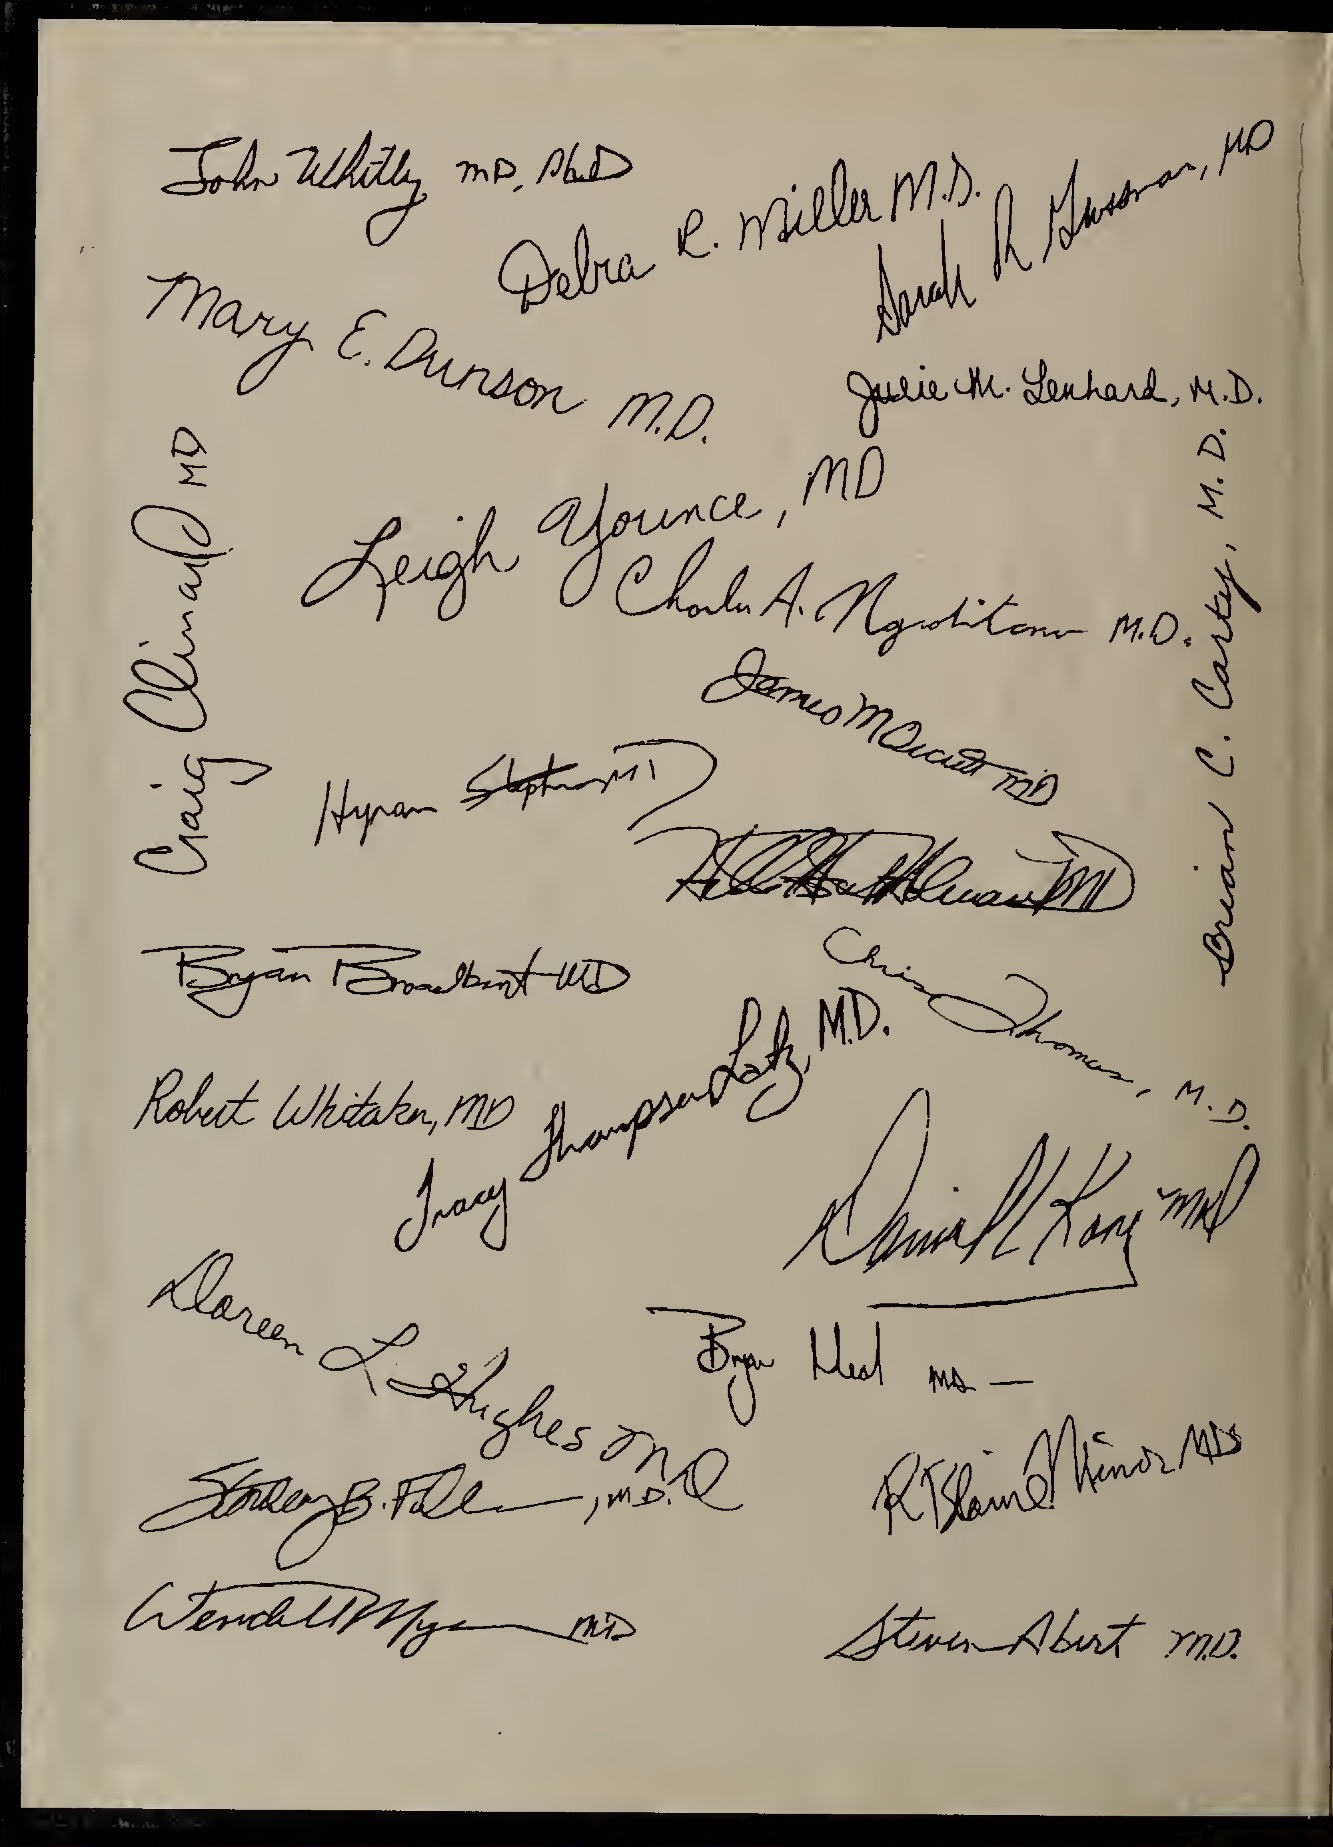 John Whitley MD, PhD
Debra R. Miller M.D.
Sarah R Gussman, MD
Mary E. Dunson M.D.
Julie M. Lenhard, M.D.
Craig Clinard MD
Leigh Younce, MD
Charles A. M.D.
Brian C. Carty, M.D.
James M MD
Hyram Stephens MD
MD
Bryan Broadbent MD
Chris Thomas, M.D.
Robert Whitaker, MD
Tracy Thompson Latz, M.D.
Daniel Kong MD
Doreen L. Hughes M.D
Bryan Neal MD
Stanley B. M.D.
R Blaine Minor MD
Wendell Myers MD
Steven Abert M.D.